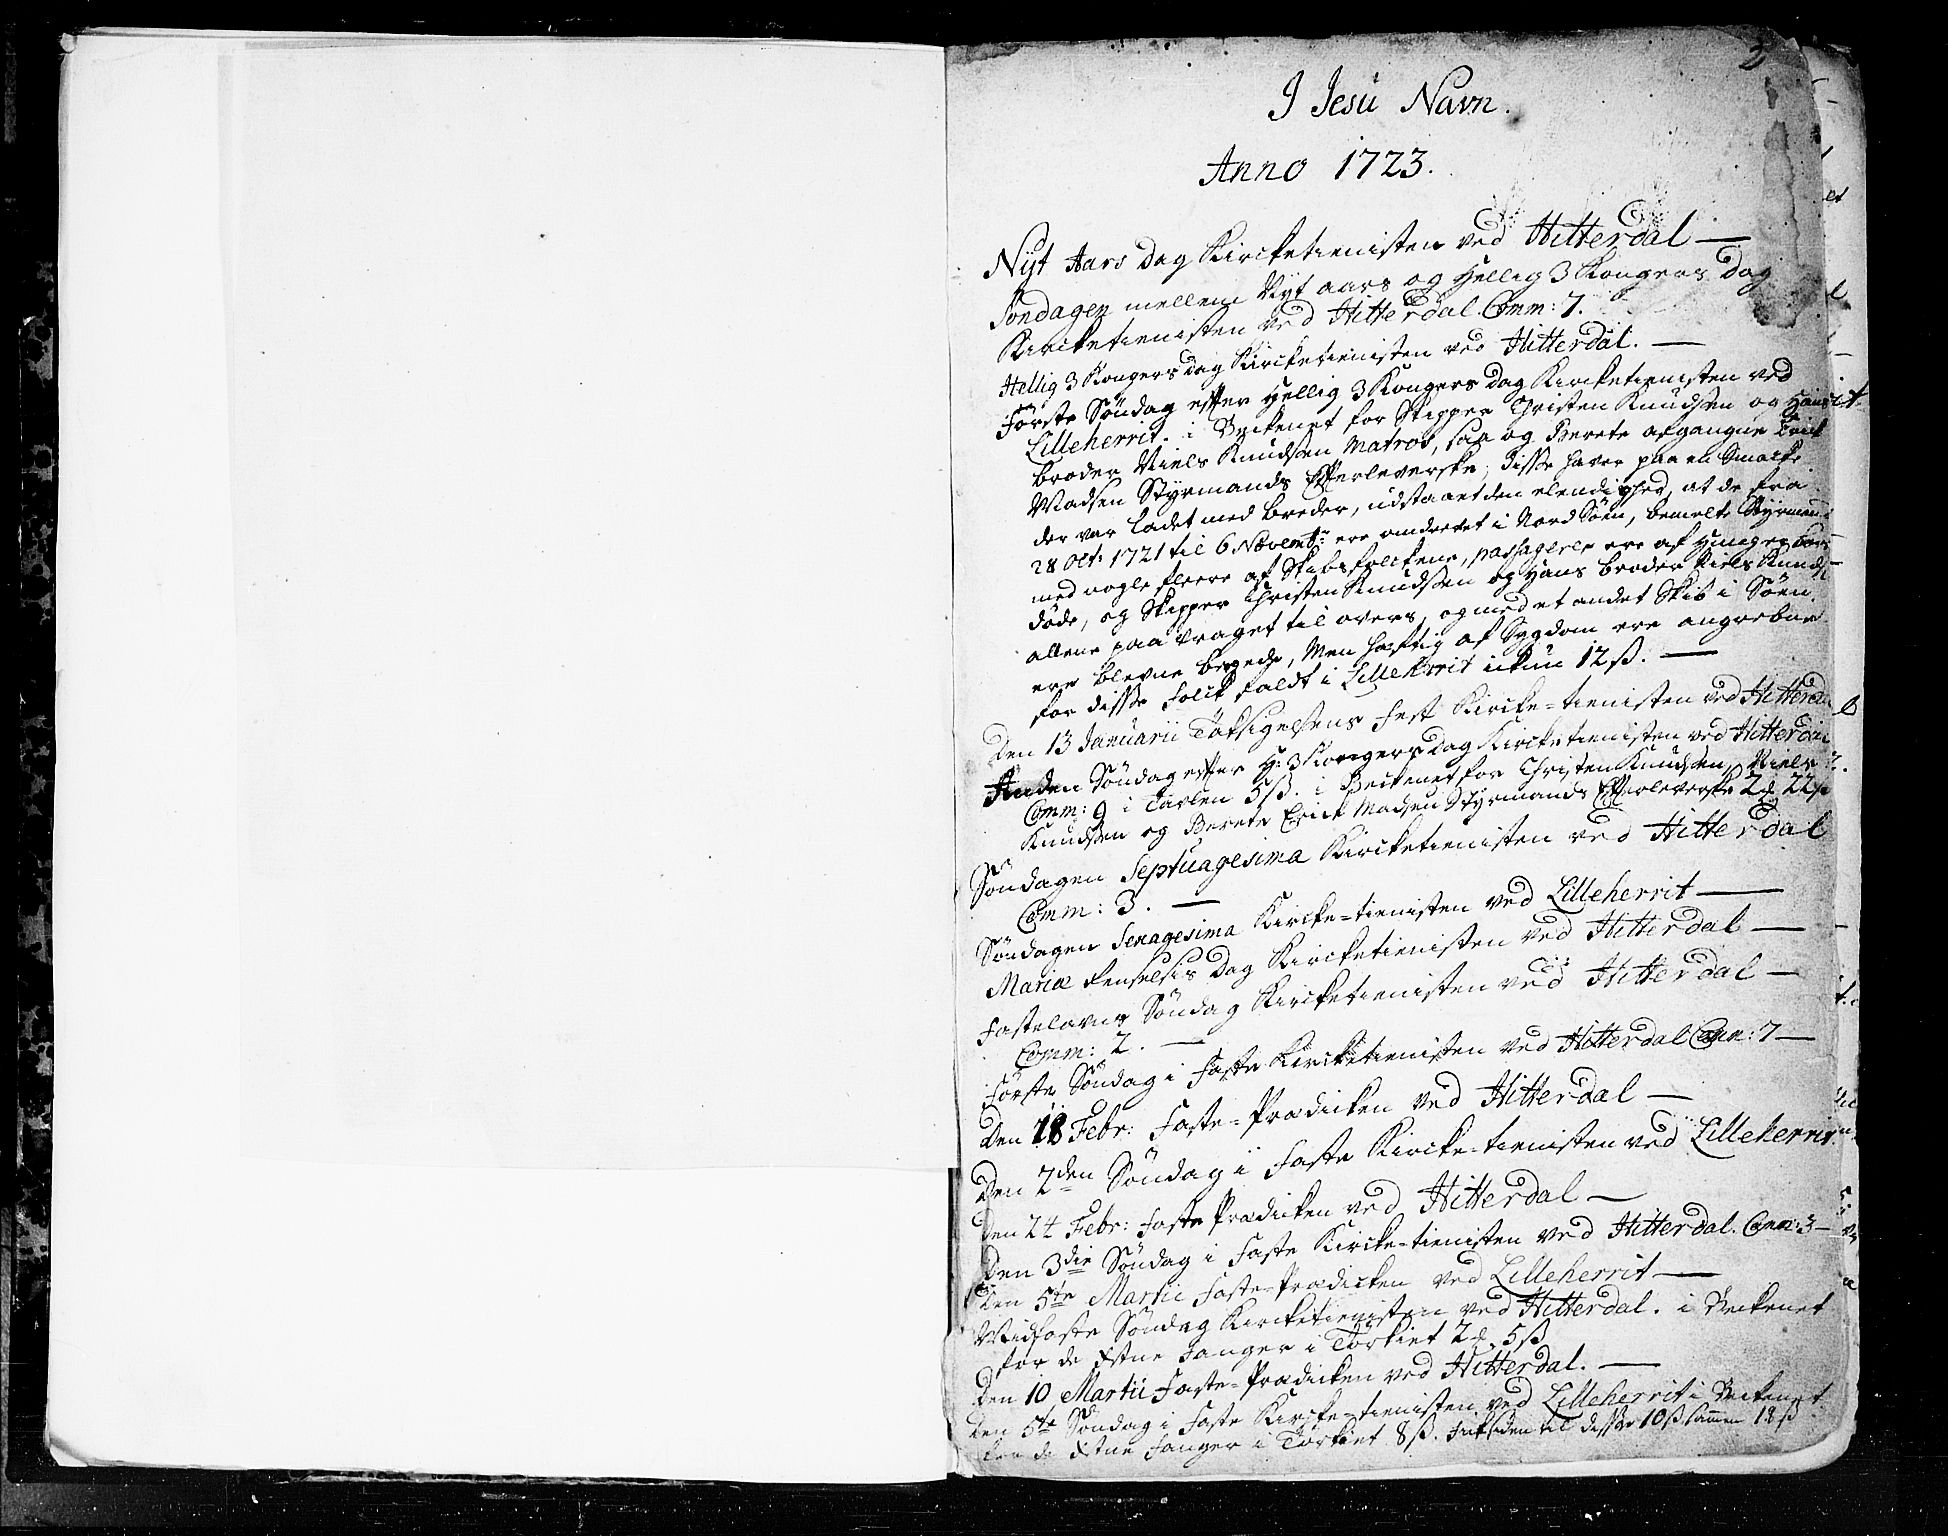 2
I Jesu Navn.
Anno 1723.
Nyt Aars dag Kircketienisten ved Hitterdal —
Söndagen mellem Nyt aars og Hellig 3 Kongers dag
Kircketienisten ved Hitterdal. Comm: 7.
Hellig 3 Kongers dag Kircketienisten ved Hitterdal. —
Förste Söndag efter Hellig 3 Kongers dag Kircketienisten ved
Lilleherrit. i Beckenet for Skipper Christen Knudsen og Hans
broder Niels Knudsen Matros, saa og Berete afgangne Erick
Madsen Styrmands Efterleverske, disse haver paa en Smacke
der var ladet med breder, udstaaet den elendighed, at de fra
28 Oct: 1721 til 6 Novembr: ere omdrevet i Nord Söen, bemelte Styrmand
med nogle fleere af Skibsfolckene, passagerer ere af Hunger
döde, og Skipper Christen Knudsen og Hans broder Niels Knuds:
allene paa vraget til overs, og med et andet Skib i Söen
ere blevne bergede, Men hæftig af Sygdom ere angrebne
for disse folck faldt i Lilleherrit ickun 12 ß. —
Den 13 Januarii Taksigelsens Fest Kircke=tienisten ved Hitterdal
Anden Söndag efter H: 3 Kongers dag Kircketienisten ved Hitterdal
Comm: 9 i Tavlen 5 ß. i Beckenet for Christen Knudsen, Niels
Knudsen og Berete Erick Madsen Styrmands Efterleverske 2 d 22 ß
Söndagen Septuagesima Kircketienisten ved Hitterdal
Comm: 3. —
Söndagen Sexagesima Kircke=tienisten ved Lilleherrit —
Mariæ Renselsis dag Kircketienisten ved Hitterdal —
Fastelavns Söndag Kircketienisten ved Hitterdal —
Comm: 2. —
Förste Söndag i Faste Kircketienisten ved Hitterdal Comm: 7 —
Den 18 Febr: Faste=Prædicken ved Hitterdal —
Den 2den Söndag i Faste Kircke=tienisten ved Lilleherrit
Den 24 Febr: Faste Prædicken ved Hitterdal —
Den 3die Söndag i Faste Kircke=tienisten ved Hitterdal. Comm: 3 —
Den 5te Martii Faste=Prædicken ved Lilleherrit —
Midfaste Söndag Kircketienisten ved Hitterdal. i Beckenet
for de Xstne Fanger i Törkiet 2 d 5 ß
Den 10 Martii Faste=Prædicken ved Hitterdal. —
Den 5te Söndag i Faste Kircke=tienisten ved Lilleherrit i Beckenet
for de Xstne Fanger i Törkiet 8 ß. siden til disse 10 ß sammen 18 ß